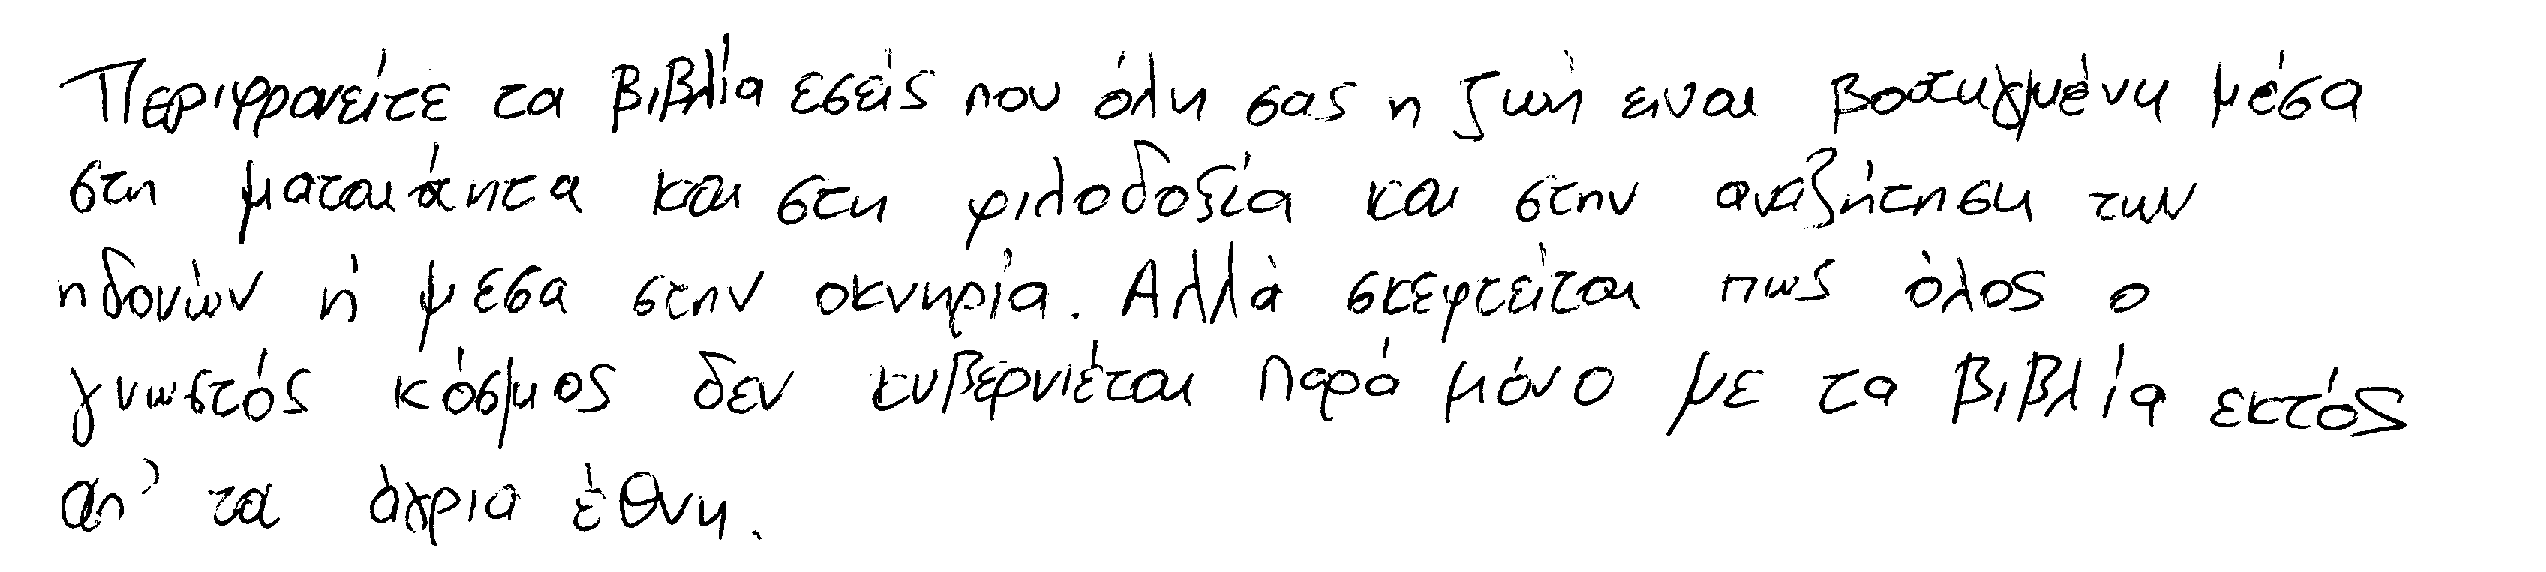 Περιφρονείτε τα βιβλία εσείς που όλη σας η ζωή ειναι βουτηγμένη μέσα
στη ματαιότητα και στη φιλοδοξία και στην αναζήτηση των
ηδονών ή μεσα στην οκνηρία. Αλλά σκεφτείται πως όλος ο
γνωστός κόσμος δεν κυβερνιέται παρά μόνο με τα βιβλία εκτός
απ' τα άγρια έθνη.